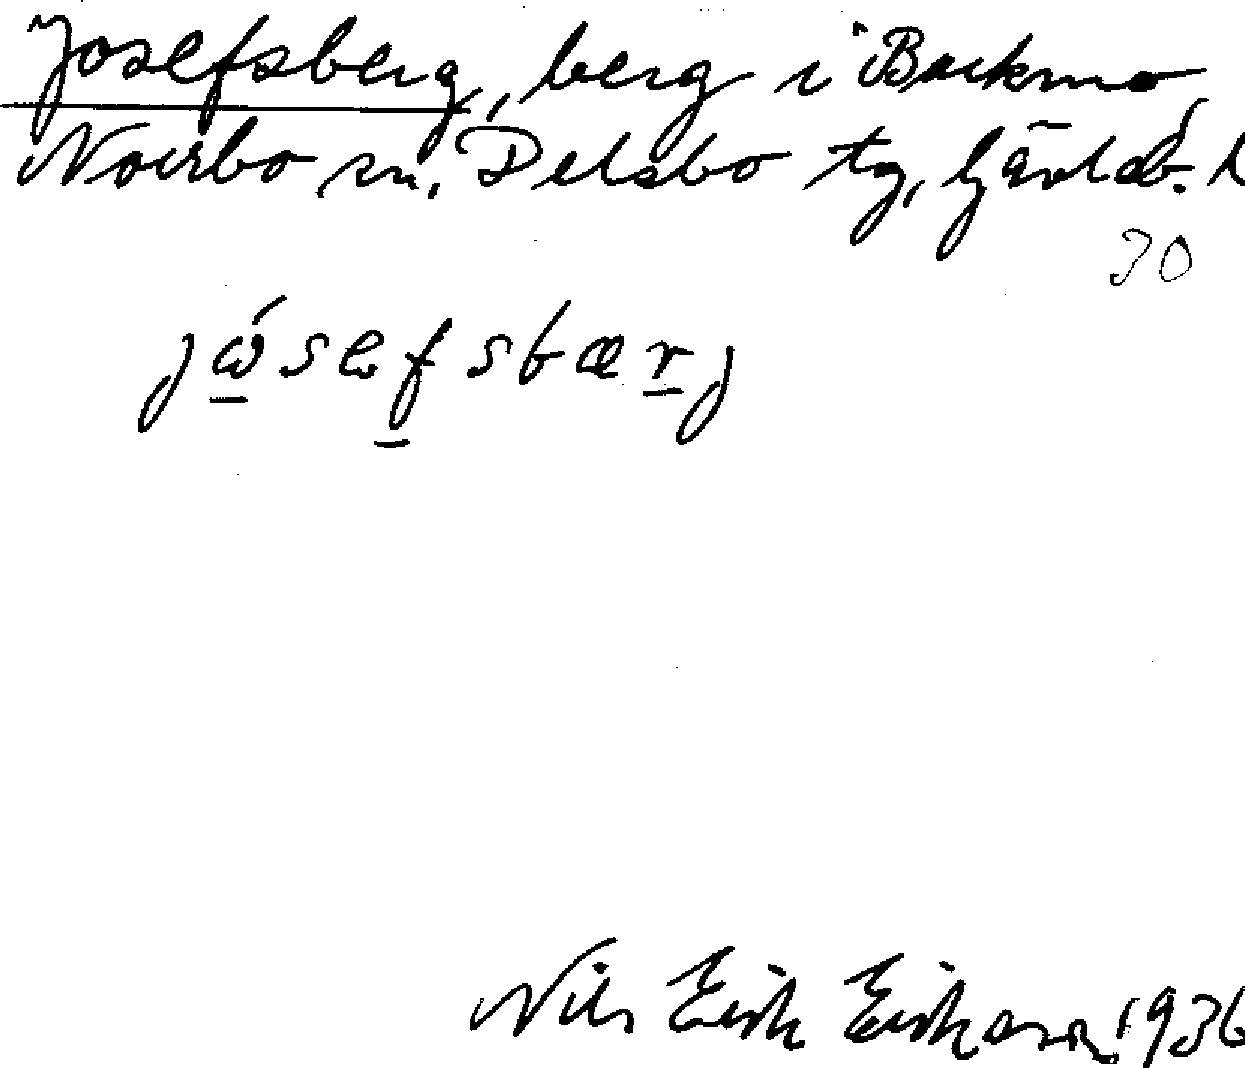 Josefsberg, berg i Backmo,
Norrbo sn, Delsbo tg, Gävleb. l
30
jώsefsbærj
Nils Erik Eriksson 1936